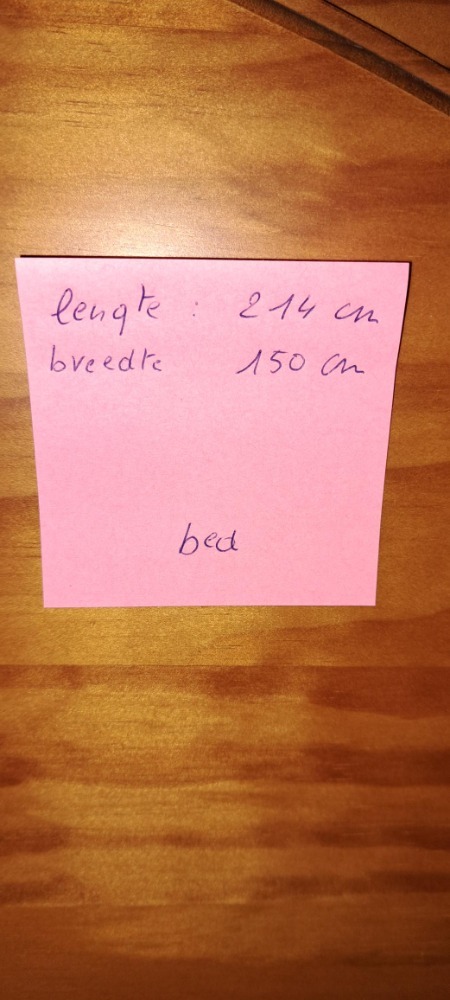 lengte : 214 cm
breedte 150 cm
bed